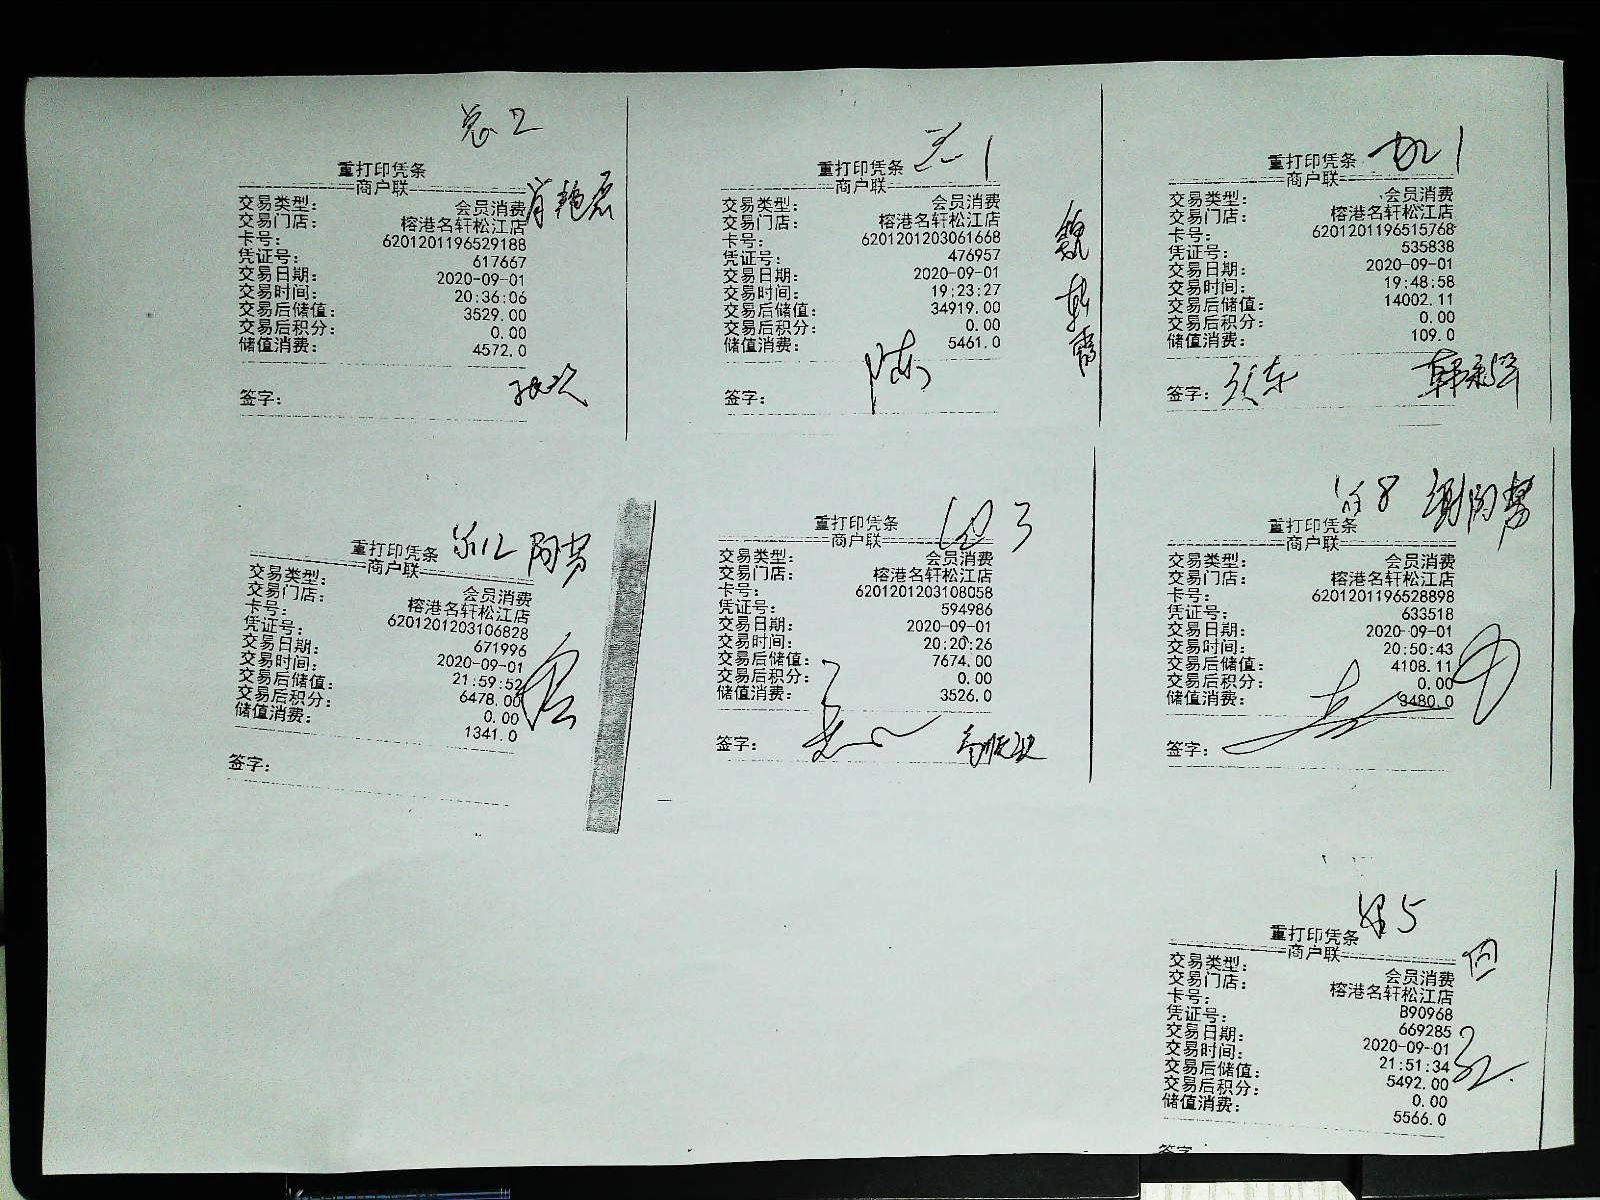 重打印凭条
商户联
交易类型： 会员消费
交易门店： 榕港名轩松江店
卡号： 6201201196529188
凭证号： 617667
交易日期： 2020-09-01
交易时间： 20:36:06
交易后储值： 3529.00
交易后积分： 0.00
储值消费： 4572.0
签字：
重打印凭条
商户联
交易类型： 会员消费
交易门店： 榕港名轩松江店
卡号： 6201201203061668
凭证号： 476957
交易日期： 2020-09-01
交易时间： 19:23:27
交易后储值： 34919.00
交易后积分： 0.00
储值消费： 5461.0
签字：
重打印凭条
商户联
交易类型： 会员消费
交易门店： 榕港名轩松江店
卡号： 6201201196515768
凭证号： 535838
交易日期： 2020-09-01
交易时间： 19:48:58
交易后储值： 14002.11
交易后积分： 0.00
储值消费： 109.0
签字：
重打印凭条
商户联
交易类型： 会员消费
交易门店： 榕港名轩松江店
卡号： 6201201203106828
凭证号： 671996
交易日期： 2020-09-01
交易时间： 21:59:52
交易后储值： 6478.00
交易后积分： 0.00
储值消费： 1341.0
签字：
重打印凭条 3
商户联
交易类型： 会员消费
交易门店： 榕港名轩松江店
卡号： 6201201203108058
凭证号： 594986
交易日期： 2020-09-01
交易时间： 20:20:26
交易后储值： 7674.00
交易后积分： 0.00
储值消费： 3526.0
签字：
重打印凭条
商户联
交易类型： 会员消费
交易门店： 榕港名轩松江店
卡号： 6201201196528898
凭证号： 633518
交易日期： 2020-09-01
交易时间： 20:50:43
交易后储值： 4108.11
交易后积分： 0.00
储值消费： 3480.0
签字：
重打印凭条
商户联
交易类型： 会员消费
交易门店： 榕港名轩松江店
卡号： B90968
凭证号： 669285
交易日期： 2020-09-01
交易时间： 21:51:34
交易后储值： 5492.00
交易后积分： 0.00
储值消费： 5566.0
签字